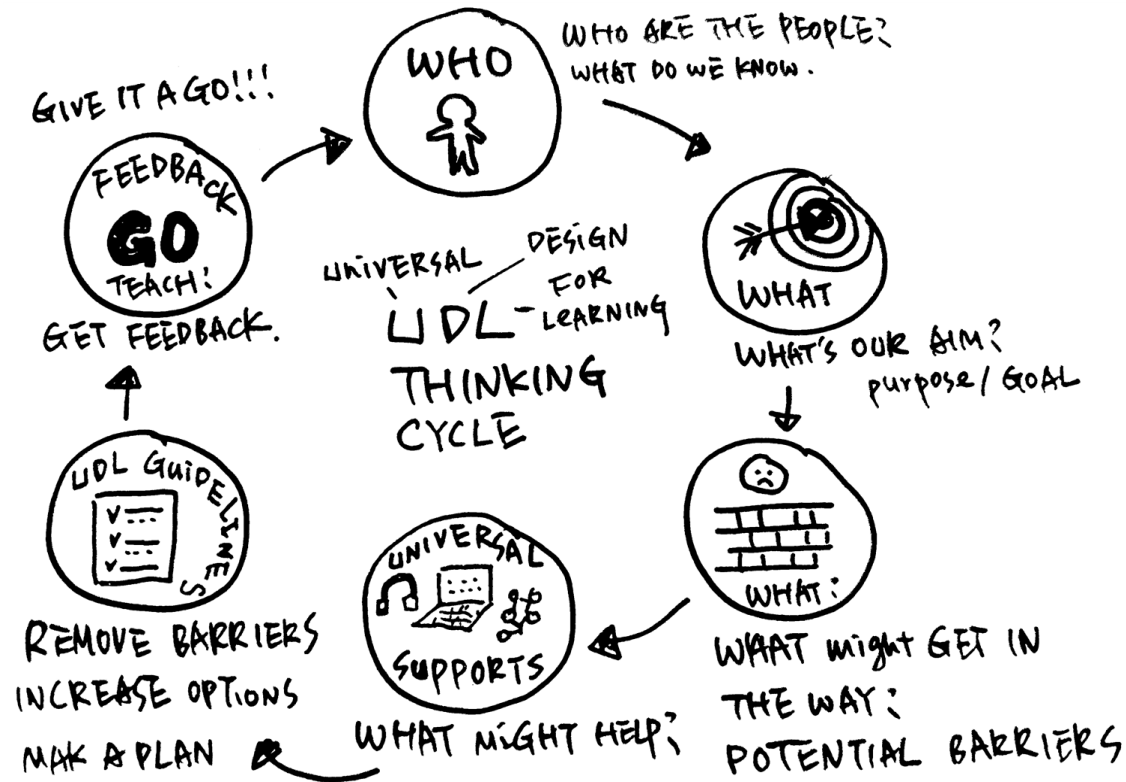 WHO
WHO ARE THE PEOPLE?
WHAT DO WE KNOW.
WHAT
WHAT'S OUR AIM?
purpose/GOAL
WHAT?
WHAT might GET IN
THE WAY?
POTENTIAL BARRIERS
UNIVERSAL
SUPPORTS
WHAT MiGHT HELP?
UDL GUiDELINES
REMOVE BARRIERS
INCREASE OPTIONS
MAK A PLAN
GIVE IT A GO!!!
FEEDBACK
GO
TEACH!
GET FEEDBACK.
UNIVERSAL
DESIGN
FOR
LEARNING
UDL
THINKING
CYCLE